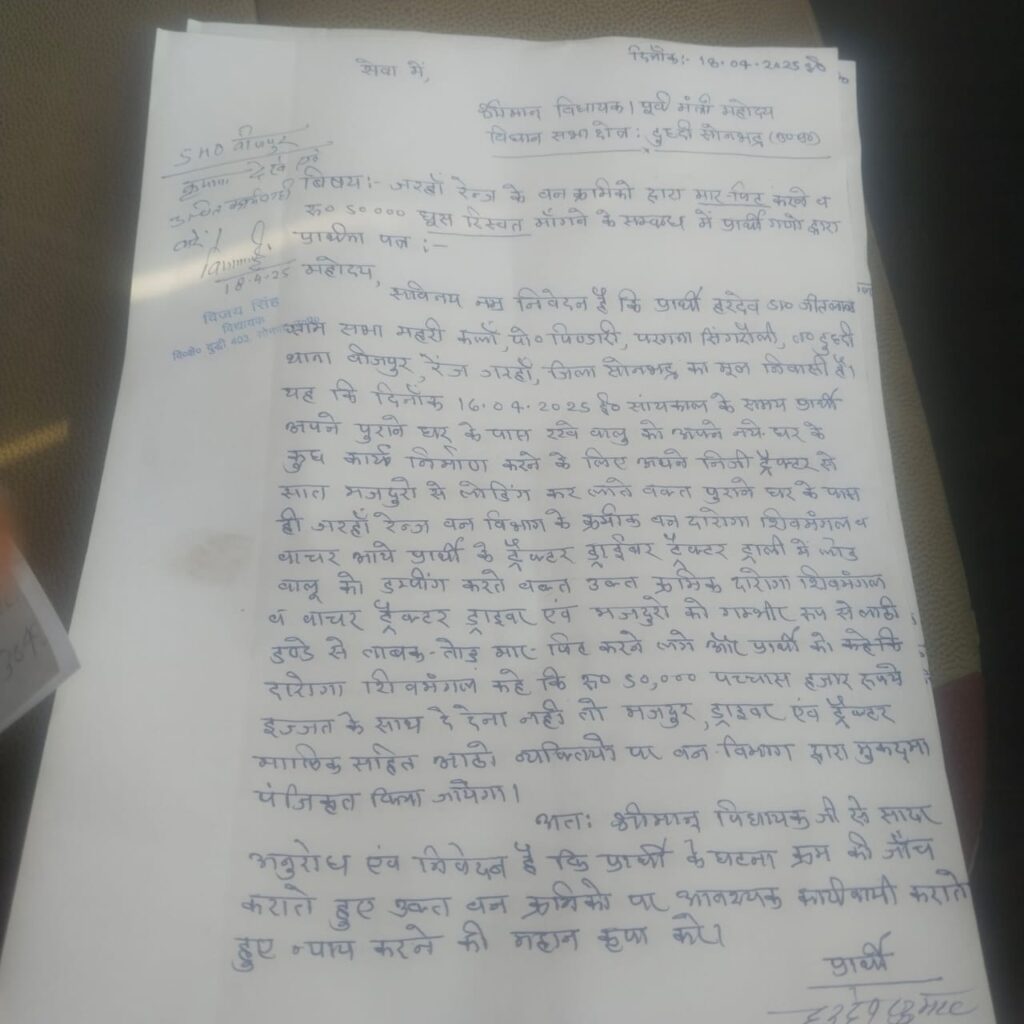 दिनाँक:- 18.04.2025 ई०
सेवा में,
श्रीमान विधायक। पूर्व मंत्री महोदय
विधान सभा क्षेत्र : दुध्दी सोनभद्र (उ०प्र०)
SHO बीजपुर
कृपया देखें एवं
उचित कार्यवाही
करें।
18.4.25
विजय सिंह
विधायक
वि०स० दुद्धी 403
बिषय:- जरहाँ रेन्ज के वन क्रमिको द्वारा मार पिट करने व
रू० 50000 घूस रिस्वत माँगने के सम्बन्ध में प्रार्थी गणो द्वारा
प्रार्थना पत्र :-
महोदय,
सविनय नम्र निवेदन है कि प्रार्थी हरदेव S/o जीतलाल
ग्राम सभा महरी कलाँ, पो० पिण्डारी, परगना सिंगरौली, त० दुध्दी
थाना बीजपुर, रेंज जरहाँ, जिला सोनभद्र का मूल निवासी है।
यह कि दिनाँक 16.04.2025 ई० सांयकाल के समय प्रार्थी
अपने पुराने घर के पास रखे बालु को अपने नये घर के
कुछ कार्य निर्माण करने के लिए अपने निजी ट्रैक्टर से
सात मजदुरो से लोडिंग कर लाते वक्त पुराने घर के पास
ही जरहाँ रेन्ज वन विभाग के क्रमीक वन दारोगा शिवमंगल व
वाचर आये प्रार्थी के ट्रैक्टर ड्राईवर ट्रैक्टर ट्राली में लोड
बालू को डम्पींग करते वक्त उक्त क्रमिक दारोगा शिवमंगल
व वाचर ट्रैक्टर ड्राइवर एंव मजदुरो को गम्भीर रूप से लाठी
डण्डे से ताबड़-तोड़ मार-पिट करने लगे और प्रार्थी को कहे कि
दारोगा शिवमंगल कहे कि रू० 50,000 पच्चास हजार रूपये
इज्जत के साथ दे देना नही तो मजदुर, ड्राइवर एंव ट्रैक्टर
मालिक सहित आठो व्यक्तियो पर वन विभाग द्वारा मुकदमा
पंजिकृत किया जायेगा।
अत: श्रीमान् विधायक जी से सादर
अनुरोध एंव निवेदन है कि प्रार्थी के घटना क्रम की जाँच
कराते हुए उक्त वन क्रमिको पर आवश्यक कार्यवायी कराते
हुए न्याय करने की महान कृपा करे।
प्रार्थी